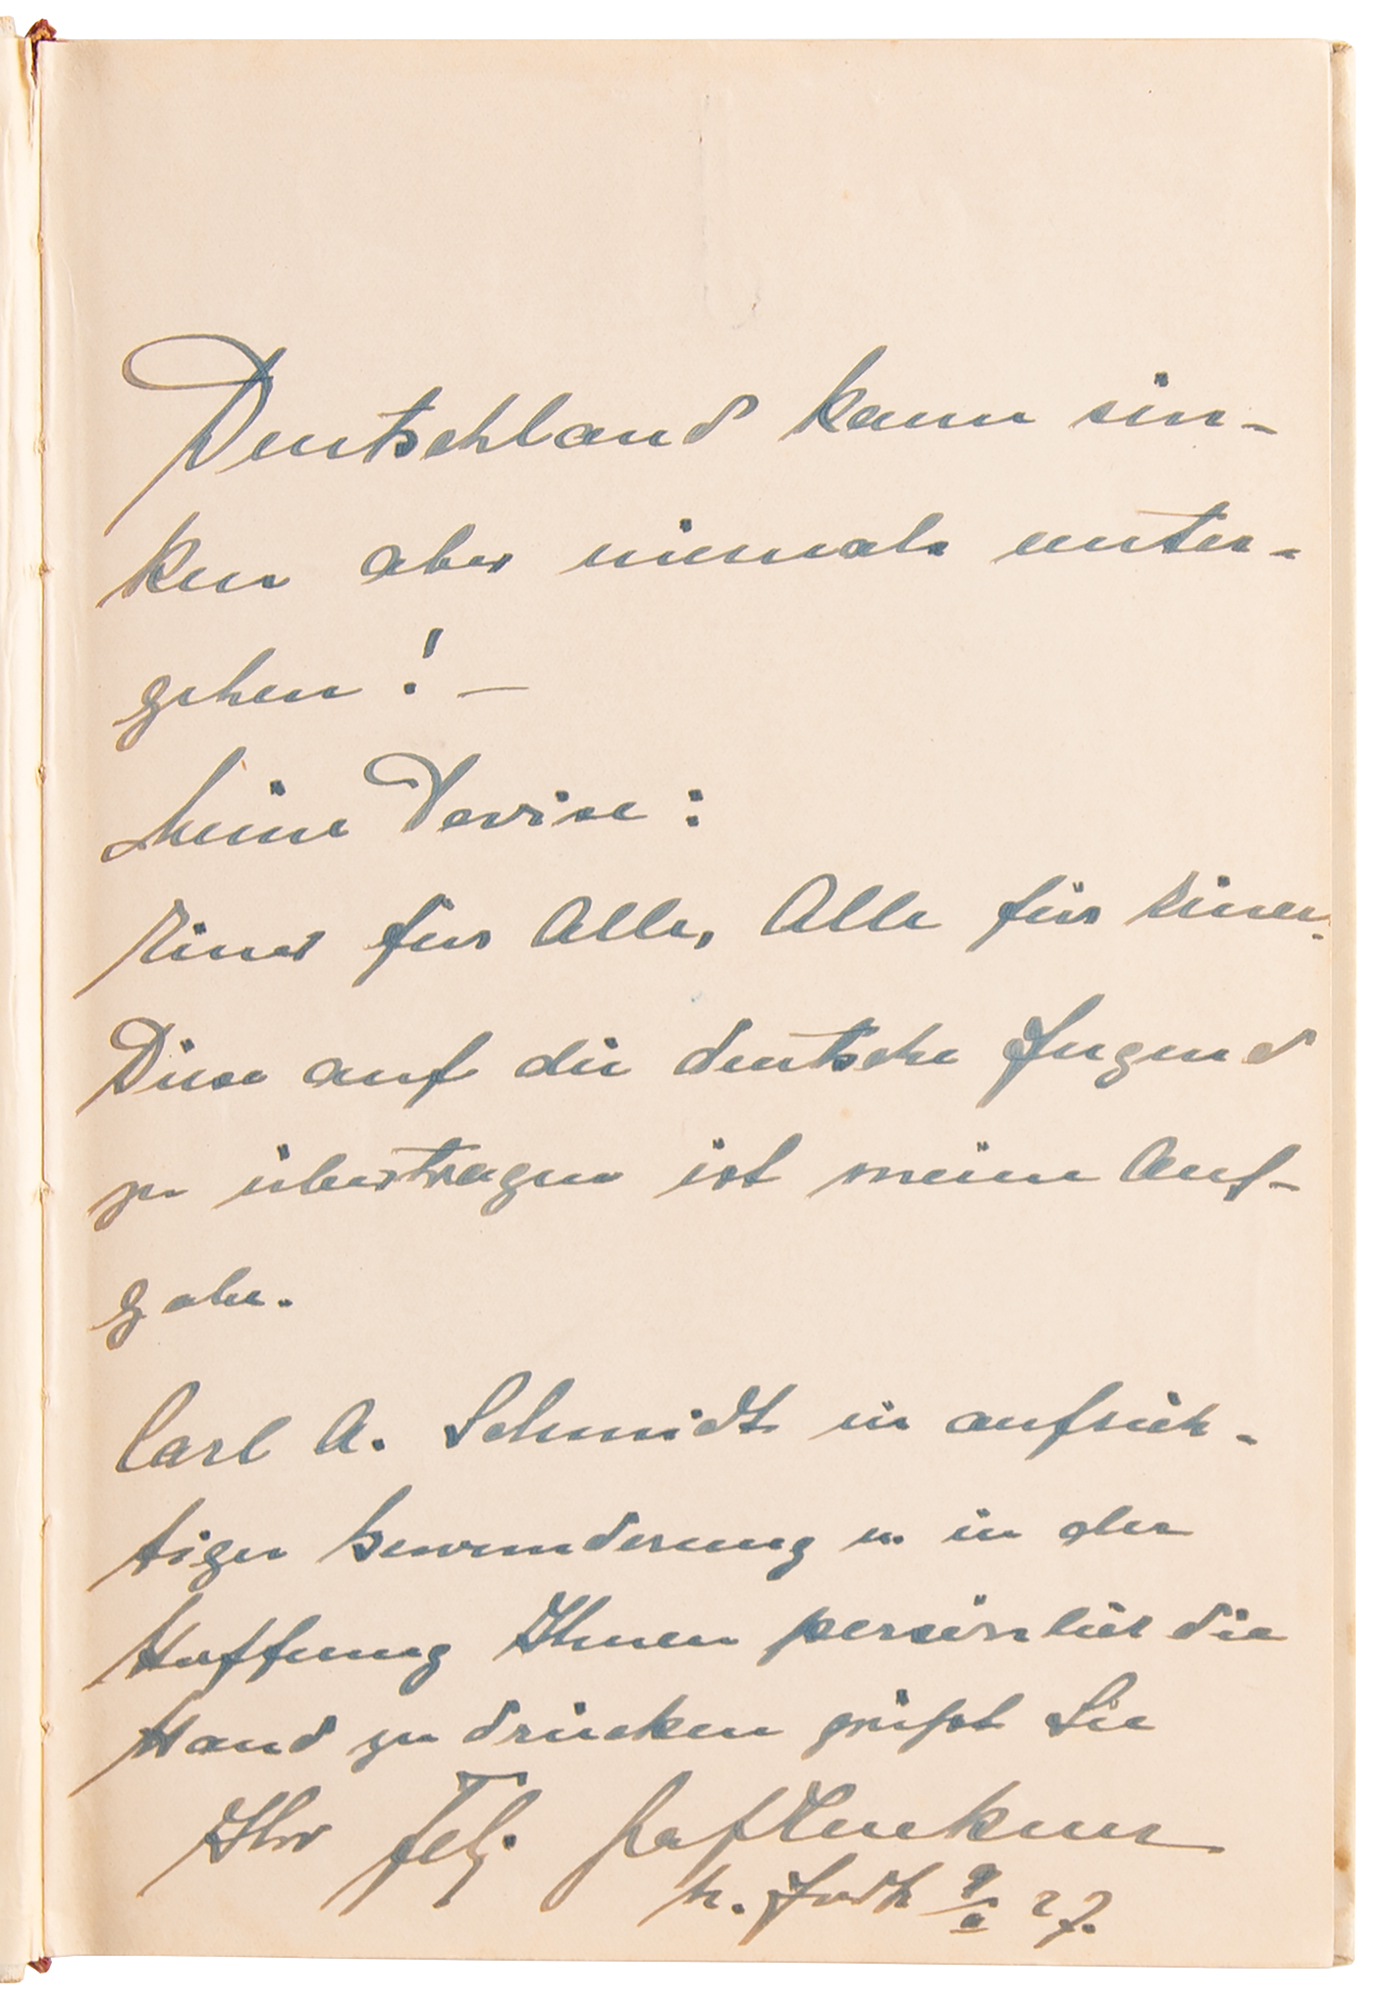 Deutschland kann sin-
ken aber niemals unter-
gehen! —
Meine Devise:
Einer für Alle, Alle für Einen.
Diese auf die deutsche Jugend
zu übertragen ist meine Auf-
gabe.
Carl A. Schmidt in aufrich-
tiger Bewunderung u. in der
Hoffnung Ihnen persönlich die
Hand zu drücken grüßt Sie
Ihr Felix Graf Luckner
N. York 27.